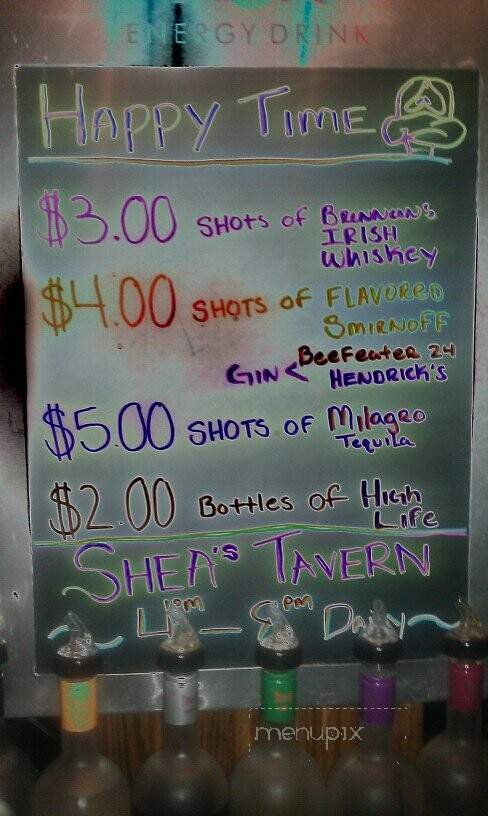 ENERGY DRINK
HAPPY TIME
$3.00 SHOTS OF BRENNAN'S
IRISH
WHISKEY
$4.00 SHOTS OF FLAVORED
SMIRNOFF
GIN < BEEFEATER 24
HENDRICK'S
$5.00 SHOTS OF Milagro
Tequila
$2.00 Bottles of High
Life
SHEA'S TAVERN
~ 4PM - 8PM Daily ~
menupix